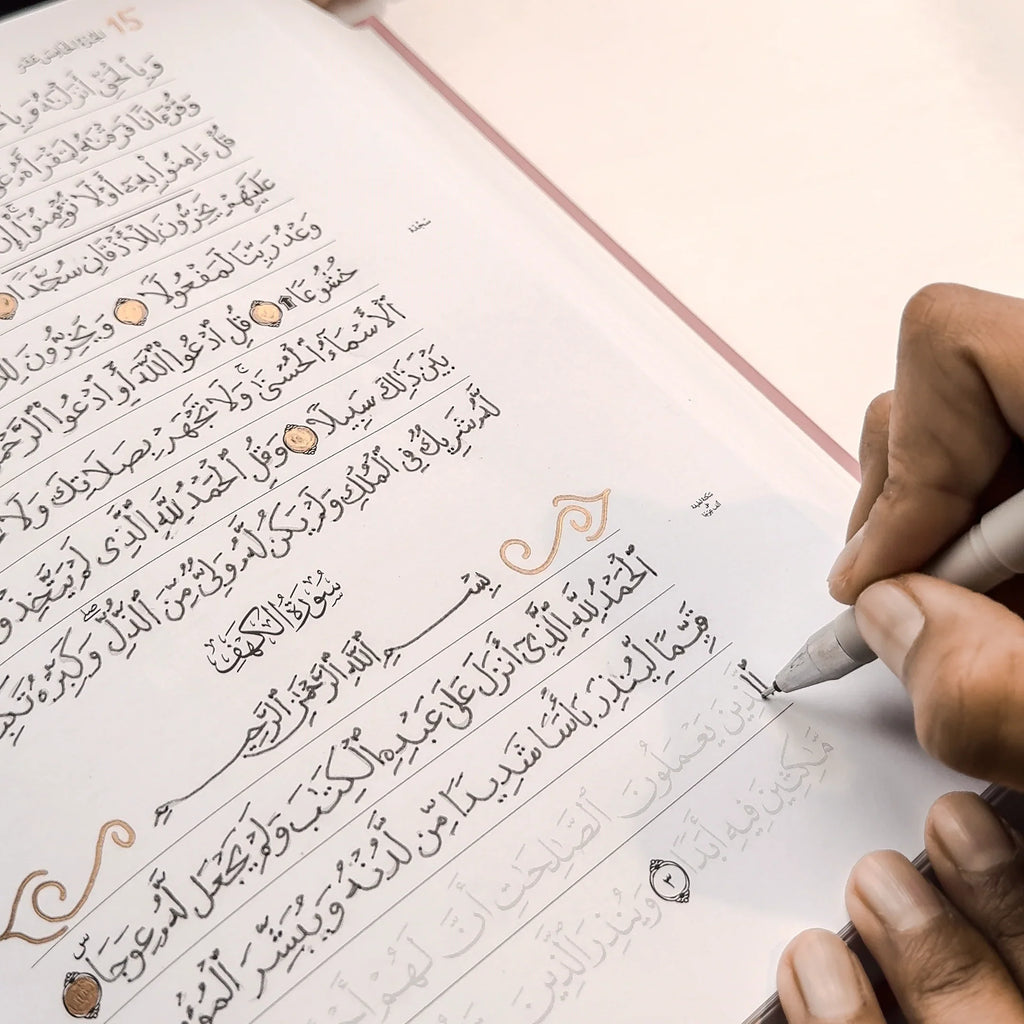 15 الجزء الخامس عشر
وَبِٱلْحَقِّ أَنزَلْنَٰهُ
وَقُرْءَانًا فَرَقْنَٰهُ لِتَقْرَأَهُۥ
قُلْ ءَامِنُوا۟ بِهِۦٓ أَوْ لَا تُؤْمِنُوٓا۟ إِنَّ
عَلَيْهِمْ يَخِرُّونَ لِلْأَذْقَانِ سُجَّدًا
سجدة
وَعْدُ رَبِّنَا لَمَفْعُولًا وَيَخِرُّونَ
خُشُوعًا ۩ قُلِ ٱدْعُوا۟ ٱللَّهَ أَوِ ٱدْعُوا۟
ٱلْأَسْمَآءُ ٱلْحُسْنَىٰ ۚ وَلَا تَجْهَرْ بِصَلَاتِكَ وَلَا
بَيْنَ ذَٰلِكَ سَبِيلًا وَقُلِ ٱلْحَمْدُ لِلَّهِ ٱلَّذِى لَمْ يَتَّخِذْ
لَّهُۥ شَرِيكٌ فِى ٱلْمُلْكِ وَلَمْ يَكُن لَّهُۥ وَلِىٌّ مِّنَ ٱلذُّلِّ ۖ وَكَبِّرْهُ
سُورَةُ الكَهْفِ
بِسْمِ ٱللَّهِ ٱلرَّحْمَٰنِ ٱلرَّحِيمِ
ٱلْحَمْدُ لِلَّهِ ٱلَّذِىٓ أَنزَلَ عَلَىٰ عَبْدِهِ ٱلْكِتَٰبَ وَلَمْ يَجْعَل لَّهُۥ عِوَجَا ۜ
قَيِّمًا لِّيُنذِرَ بَأْسًا شَدِيدًا مِّن لَّدُنْهُ وَيُبَشِّرَ
ٱلَّذِينَ يَعْمَلُونَ ٱلصَّٰلِحَٰتِ أَنَّ لَهُمْ
مَّٰكِثِينَ فِيهِ أَبَدًا ٣ وَيُنذِرَ ٱلَّذِينَ